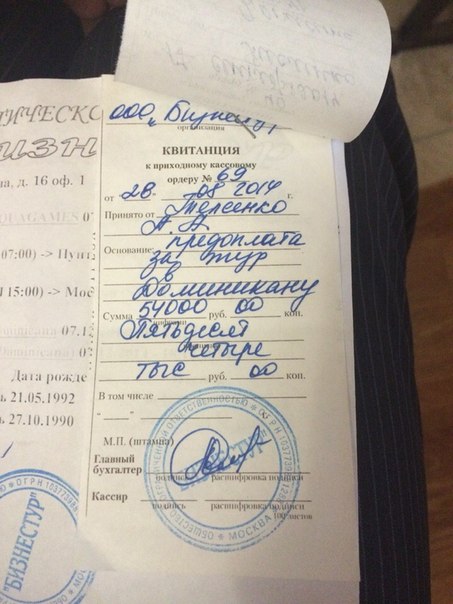 ООО "Бизнестур"
организация
КВИТАНЦИЯ
к приходному кассовому
ордеру № 69
от 28. 08 2014 г.
Принято от
А. А
Основание: предоплата
за тур
в
Доминикану
Сумма 54000 руб. 00 коп.
Пятьдесят
четыре
тыс руб. 00 коп.
В том числе
М.П. (штампа)
Главный
бухгалтер
подпись расшифровка подписи
Кассир
подпись расшифровка подписи
100 листов
ОБЩЕСТВО ОГРАНИЧЕННОЙ ОТВЕТСТВЕННОСТЬЮ
МОСКВА
ТИЧЕСКО
ИЗН
а, д. 16 оф. 1
07:00) -> Пунт
15:00) -> Мос
07.12
Дата рожде
ь 21.05.1992
ь 27.10.1990
"БИЗНЕСТУР"